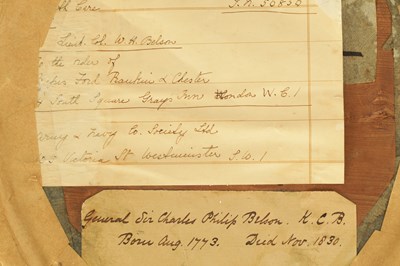 S.N. 50830
Lieut. Col. W. H. Belson
the order of
Ford Rankin & Chester
South Square Grays Inn London W.C.1
Army & Navy Co. Society Ltd
Victoria St Westminster S.W.1
General Sir Charles Philip Belson. K.C.B.
Born Aug. 1773. Died Nov. 1830.